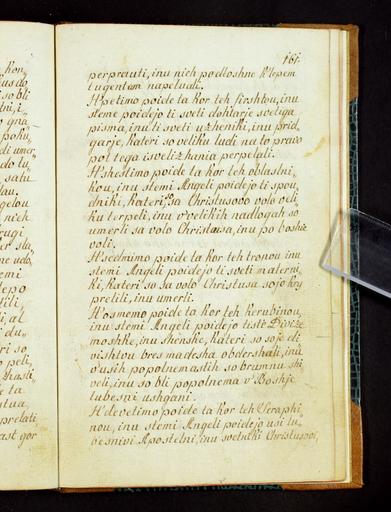 Kon,
161.
perprauti, inu nich podloshne k'lepem
tugentam napeludi.
H'petimo poide ta Kor teh firshtou, inu
steme poidejo ti sveti dohtarje svetiga
pisma, inu ti sveti uzheniki, inu prid,
garje, kateri so veliku ludi na to pravo
pot tega isvelizhania perpelali.
H'shestimo poide ta kor teh oblastni,
kou, inu stemi Angeli poidejo ti spou,
dniki, kateri sa Christusovo volo veli,
ku terpeli, inu v'velikih nadlogah so
umerli sa volo Christusa, inu po boshje
voli.
H'sedmimo poide ta kor teh tronou inu
stemi Angeli poidejo ti sveti materni,
ki, kateri so sa volo Christusa sojo kry
pretili, inu umerli.
H'osmemo poide ta kor teh kerubinou,
inu stemi Angeli poidejo tiste Divize
moshke, inu shenske, kateri so sojo di
vishtvu bres madesha obdershali, inu
v'usih popolnemastih so brumnu shi
veli, inu so bli popolnema v'Boshje
lubesni ushgani.
H'devetimo poide ta kor teh Seraphi
nou, inu stemi Angeli poidejo usi lu,
besnivi Apostelni, inu svetniki Christusovi,